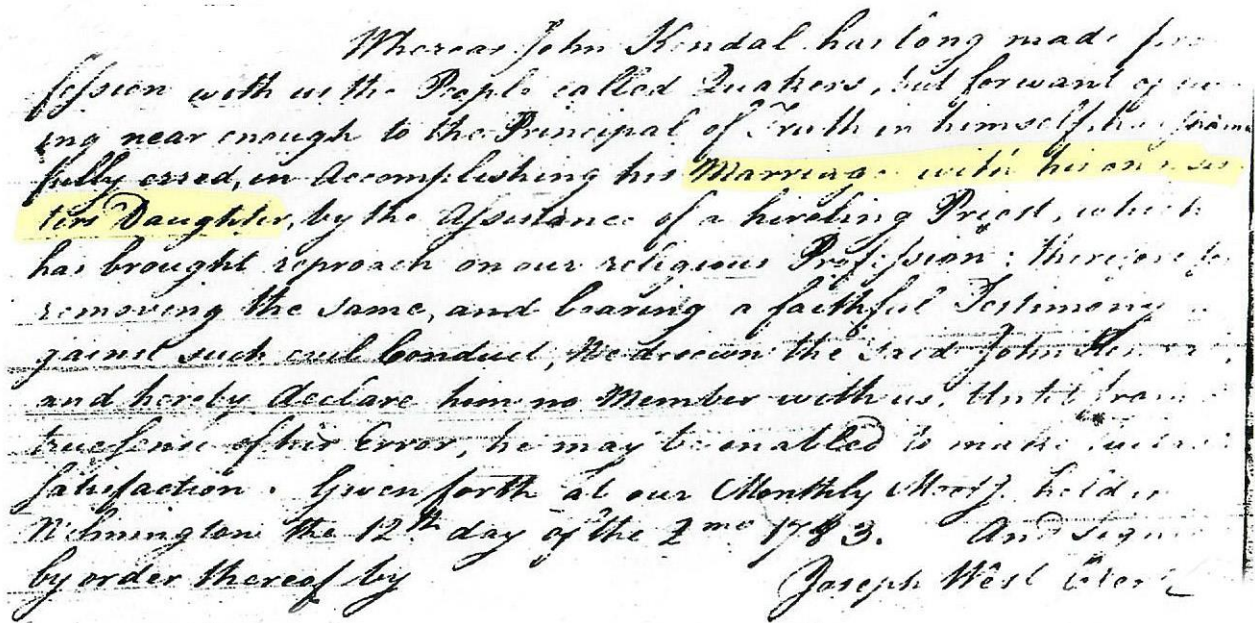 Whereas John Kendal has long made pro
fession with us the People called Quakers, but for want of
ing near enough to the Principal of Truth in himself, has shame
fully erred, in Accomplishing his Marriage with his own sis
ters Daughter, by the Assistance of a hireling Priest, which
has brought reproach on our religious Profession: therefore for
removing the same, and bearing a faithful Testimony a
gainst such evil Conduct, We disown the said John Kendal,
and hereby declare him no Member with us, Until from
true sense of his Error, he may be enabled to make
satisfaction. Given forth at our Monthly Meetg. held in
Wilmington the 12th day of the 2mo 1783. And signd
by order thereof by Joseph West Clerk